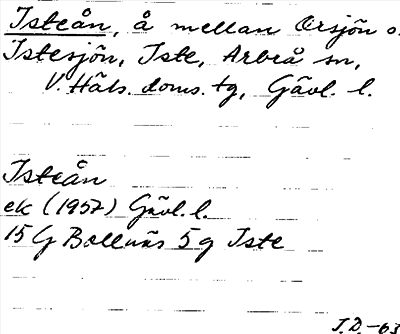 Isteån, å mellan Orsjön o.
Istesjön, Iste, Arbrå sn,
V. Häls. doms. tg, Gävl. l.
Isteån
ek (1957) Gävl. l.
15 G Bollnäs 5 g Iste
J.D.-63